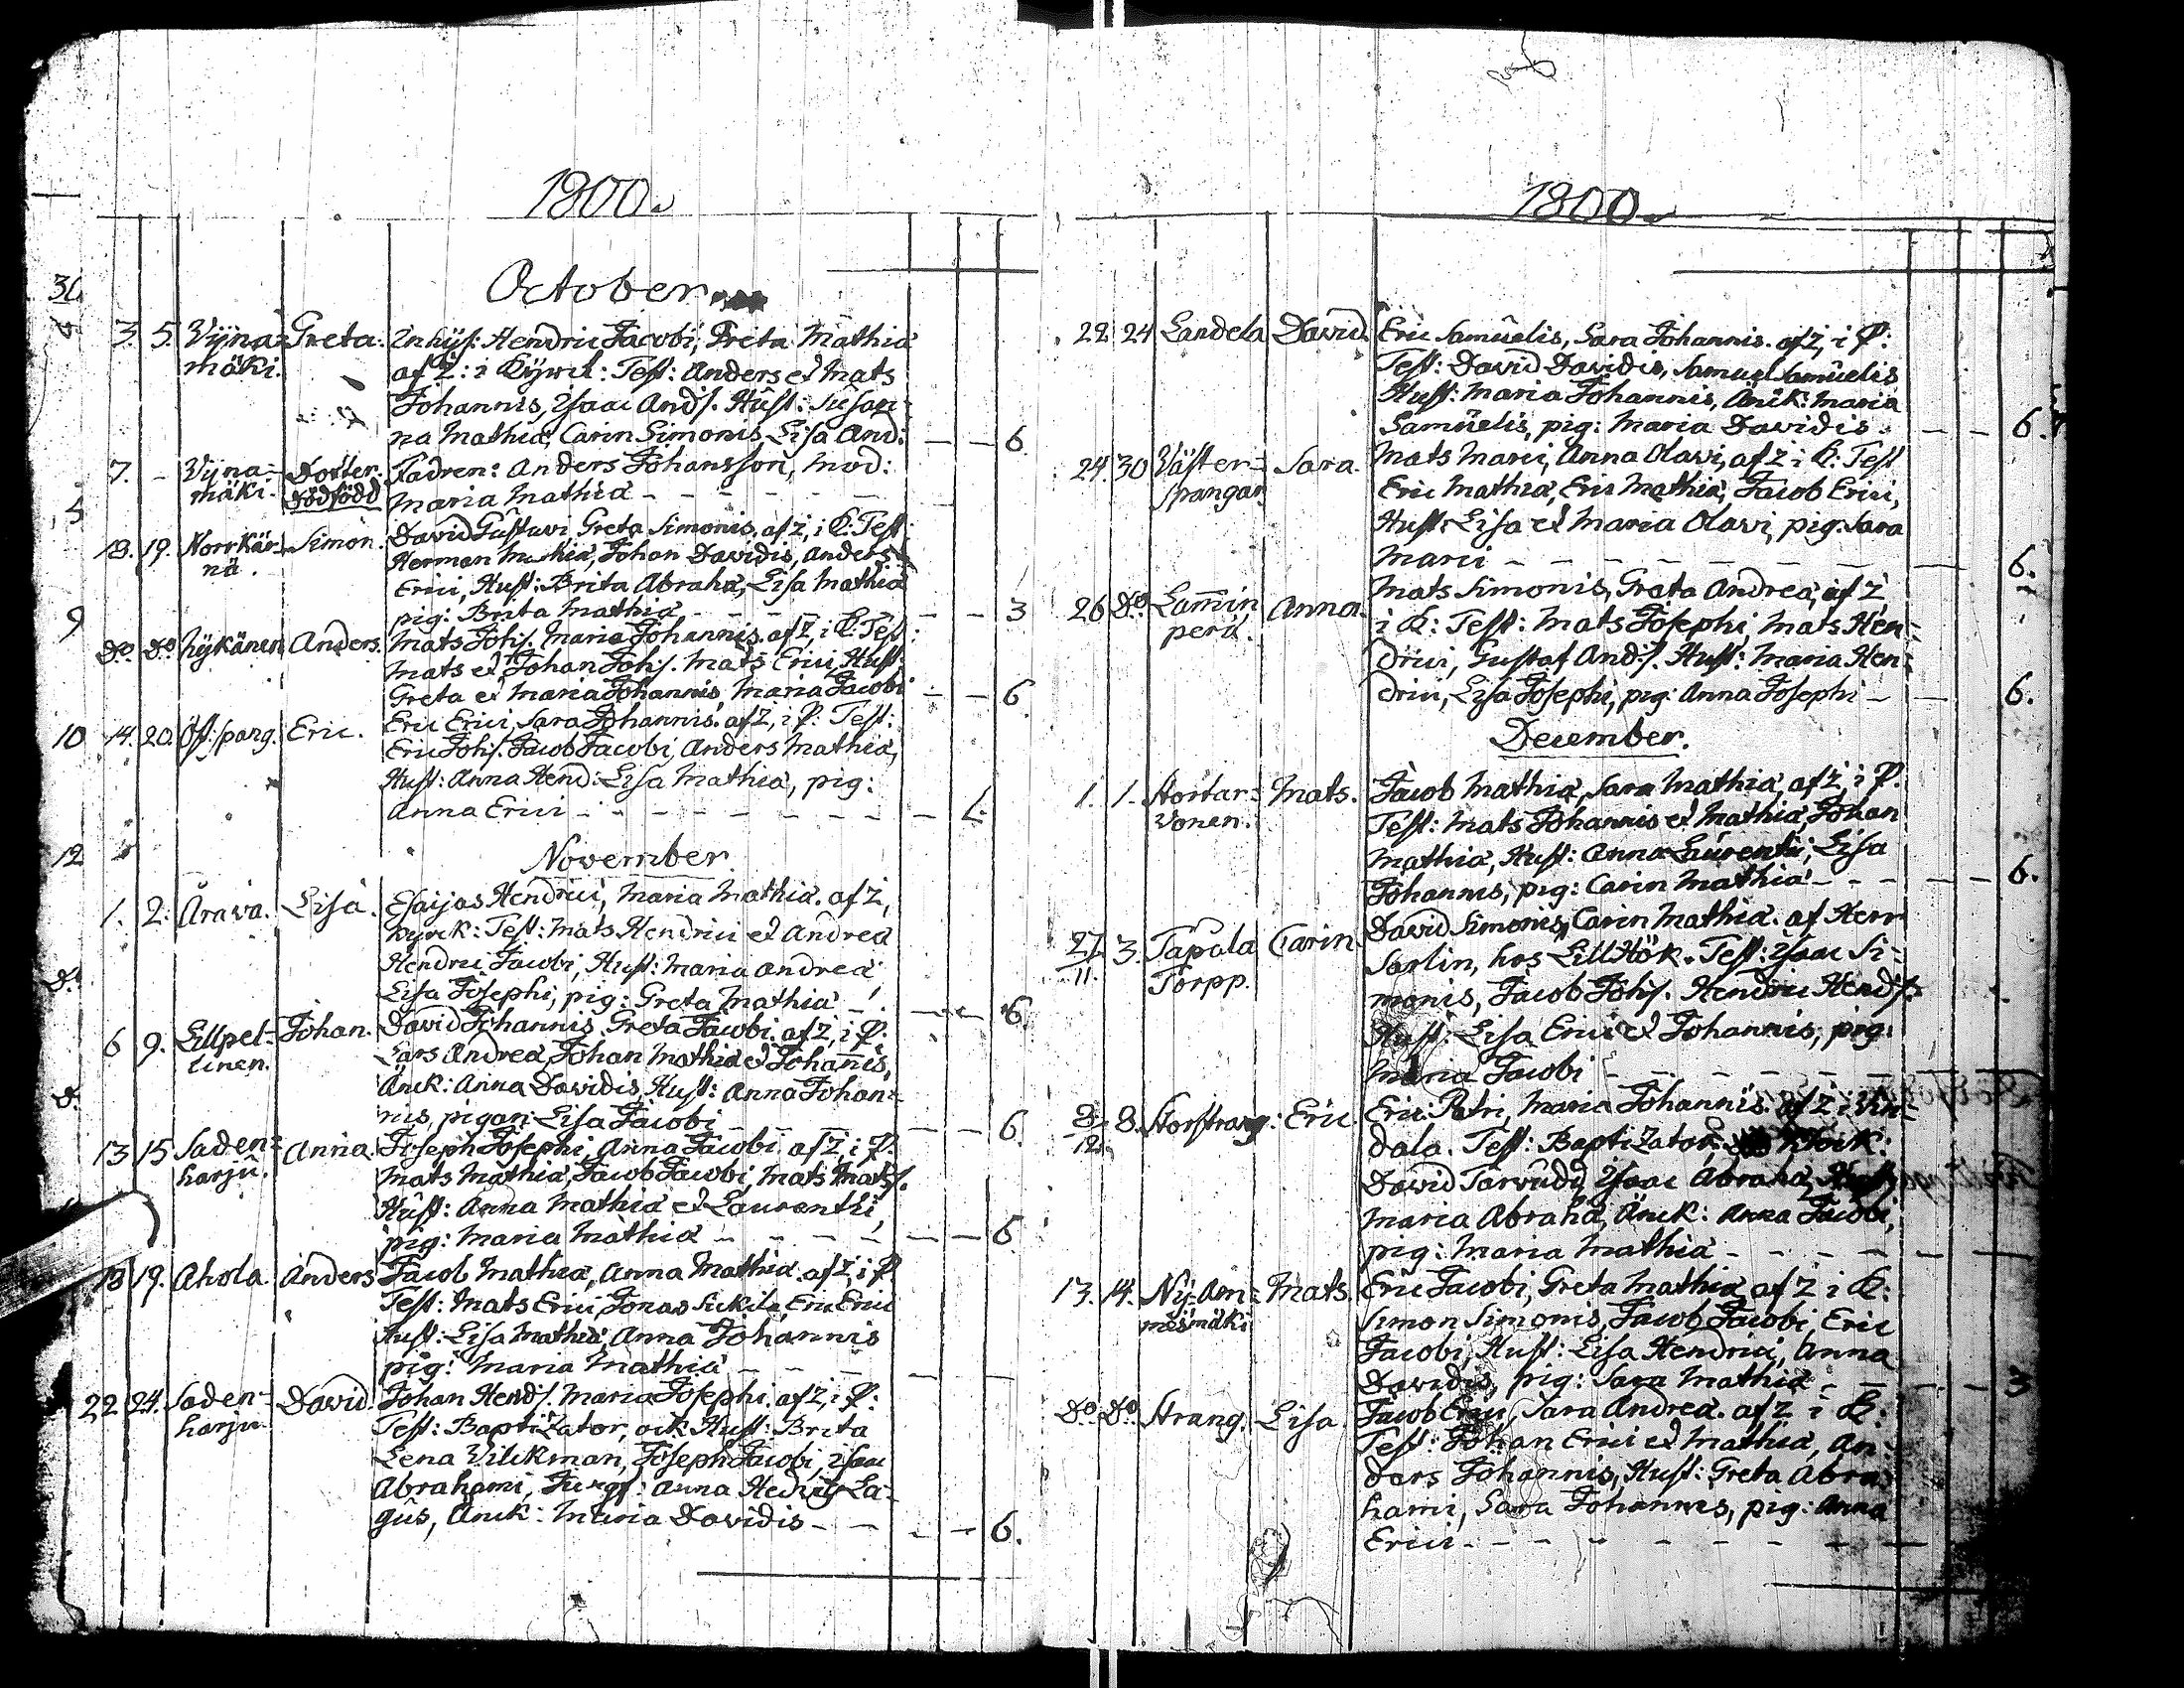 1800.
October
3. 5. Wÿna- Greta. Inhÿs: Hendric Jacobi, Greta Mathiæ
mäki. af Z: i Kÿrck: Test: Anders et Mats
Johannis, Isaac Ands. Hust: Susan-
na Mathiæ, Carin Simonis, Lisa And: - - 6
7. - Wÿna- Dotter. Fadren: Anders Johansson, mod:
mäki. dödfödd Maria Mathiæ - - - -
18. 19. Norrkär- Simon. David Gustavi, Greta Simonis. af Z, i K: Test
nä. Herman Mathiæ, Johan Davidis, Anders
Erici, Hust: Brita Abrahæ, Lisa Mathiæ
pig: Brita Mathiæ - - - - 3
Do Do Nÿkänen Anders. Mats Johs. Maria Johannis. af Z, i K: Test:
Mats et Johan Johs. Mats Erici, Hust:
Greta et Maria Johannis, Maria Jacobi - - 6
14. 20. Öst:spang. Eric. Eric Erici, Sara Johannis. af Z, i P: Test:
Eric Johs. Jacob Jacobi, Anders Mathiæ,
Hust: Anna Hend: Lisa Mathiæ, pig:
Anna Erici - - - - - - -
November
1. 2. Årawa. Lisa. Esaijas Hendrici, Maria Mathiæ. af Z,
Kyrck: Test: Mats Hendrici et Andreæ
Hendric Jacobi, Hust: Maria Andreæ
Lisa Josephi, pig: Greta Mathiæ - - - 6.
6 9. Lillpel- Johan. David Johannis Greta Jacobi. af Z, i P:
tinen. Lars Andreæ, Johan Mathiæ et Johannis,
Änck: Anna Davidis, Hust: Anna Johan-
nis, pigan Lisa Jacobi - - - - 6.
13 15 Saden- Anna. Joseph Josephi, Anna Jacobi af Z, i P.
harju. Mats Mathiæ, Jacob Jacobi, Mats Mats.
Hust: Anna Mathiæ et Laurenthi,
pig: Maria Mathiæ - - - - - 6
18 19. Ahola Anders Jacob Mathiæ, Anna Mathiæ. af Z, i P
Test: Mats Erici, Jonas Sickila, Eric Erici
Hust: Lisa Mathiæ, Anna Johannis
pig: Maria Mathiæ - - - - -
22 24. Saden- David. Johan Hends. Maria Josephi. af Z, i P:
harju. Test: Baptizator, ock Hust: Brita
Lena Wilckman, Joseph Jacobi, Isaac
Abrahami, Jungf: Anna Hedvig La-
gus, Änck: Maria Davidis - - - - 6.
1800.
22 24 Sandela David. Eric Samuelis, Sara Johannis. af Z, i P:
Test: David Davidis, Samuel Samuelis
Hust: Maria Johannis, Änck: Maria
Samuelis, pig: Maria Davidis. - - - 6.
24. 30 Wäster- Sara. Mats Marci, Anna Olavi, af Z i K: Test
spangar Eric Mathiæ, Eric Mathiæ, Jacob Erici,
Hust: Lisa et Maria Olavi, pig: Sara
Marci - - - - - - - 6.
26 Do Lamin Anna. Mats Simonis, Greta Andreæ, af Z
perä. i K: Test: Mats Josephi, Mats Hen-
drici, Gustaf Ands. Hust: Maria Hen-
drici, Lisa Josephi, pig: Anna Josephi - - 6.
December.
1. 1. Stortar- Mats. Jacob Mathiæ, Sara Mathiæ, af Z, i P.
vonen. Test: Mats Johannis et Mathiæ, Johan
Mathiæ, Hust: Anna Laurenti, Lisa
Johannis, pig: Carin Mathiæ - - - - 6.
27 3. Tapola Carin. David Simonis, Carin Mathiæ. af Herr
11. Torpp. Sarlin, hos Lill Hök. Test: Isaac Si-
monis, Jacob Johs. Hendric Hends.
Hust: Lisa Erici et Johannis, pig:
Maria Jacobi - - - - - -
8 8. Storstrang: Eric. Eric Petri, Maria Johannis. af Z i Vin-
12. dala. Test: Baptizator
David Tarvudd, Isaac Abrahæ, Hust:
Maria Abrahæ, Änck: Anna Jacobi,
pig: Maria Mathiæ - - - - -
13. 14. Nÿ-Am- Mats. Eric Jacobi, Greta Mathiæ, af Z i K:
mesmäki Simon Simonis, Jacob Jacobi, Eric
Jacobi, Hust: Lisa Hendrici, Anna
Davidis, pig: Sara Mathiæ - - - - 3
Do Do Strang. Lisa. Jacob Erici, Sara Andreæ. af Z i K:
Test: Johan Erici et Mathiæ, An-
ders Johannis, Hust: Greta Abra-
hami, Sara Johannis, pig: Anna
Erici. - - - - - - -